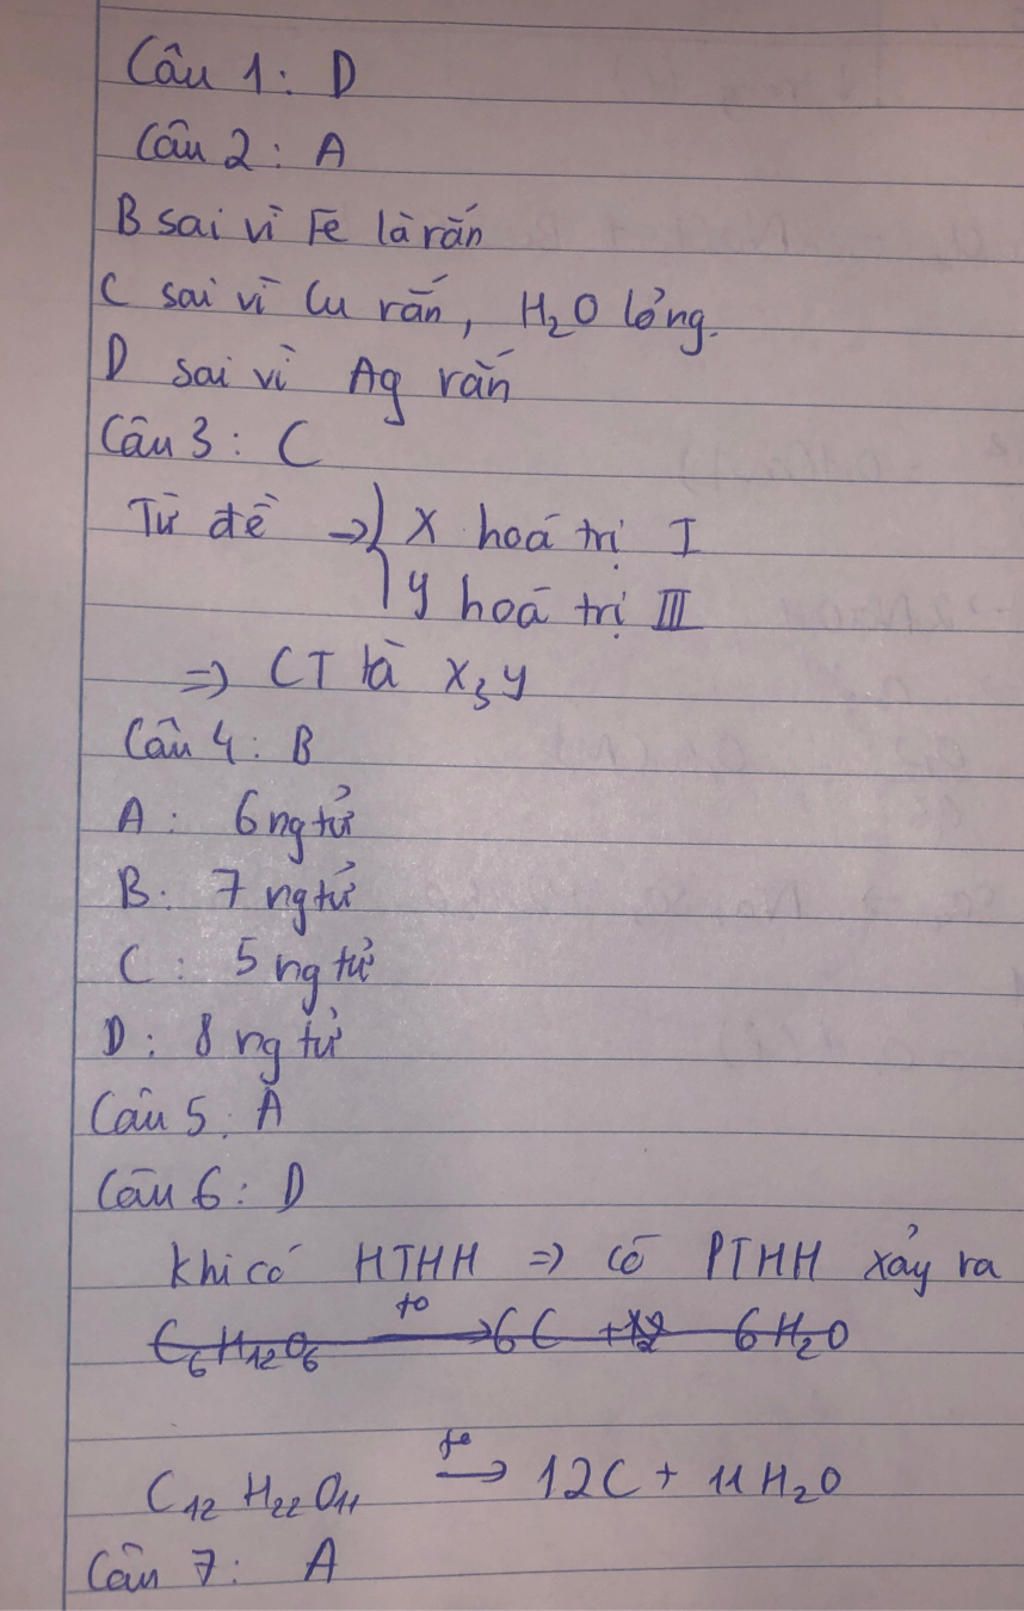 Câu 1: D
Câu 2: A
B sai vì Fe là rắn
C sai vì Cu rắn, H2O lỏng.
D sai vì Ag rắn
Câu 3: C
Từ đề => X hoá trị I
y hoá trị III
=> CT là X3y
Câu 4: B
A: 6 ng tử
B: 7 ng tử
C: 5 ng tử
D: 8 ng tử
Câu 5: A
Câu 6: D
khi có HTHH => có PTHH xảy ra
C6H12O6 to→ 6C + 6H2O
C12H22O11 to→ 12C + 11H2O
Câu 7: A